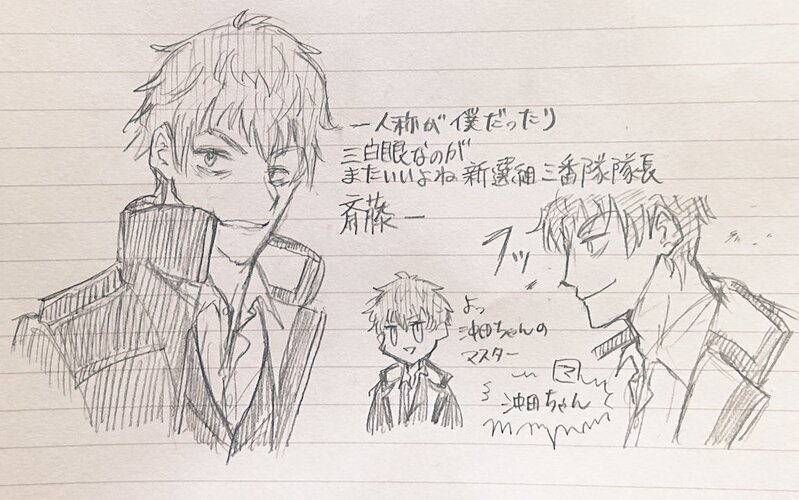 一人称が僕だったり
三白眼なのが
またいいよね 新選組三番隊隊長
斎藤一
フッ
よっ
沖田ちゃんの
マスター
沖田ちゃん